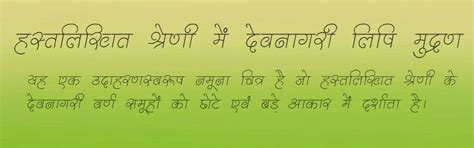 हस्तलिखित श्रेणी में देवनागरी लिपि मुद्रण
यह एक उदाहरणस्वरूप नमूना चित्र है जो हस्तलिखित श्रेणी के
देवनागरी वर्ण समूहों को छोटे एवं बड़े आकार में दर्शाता है।